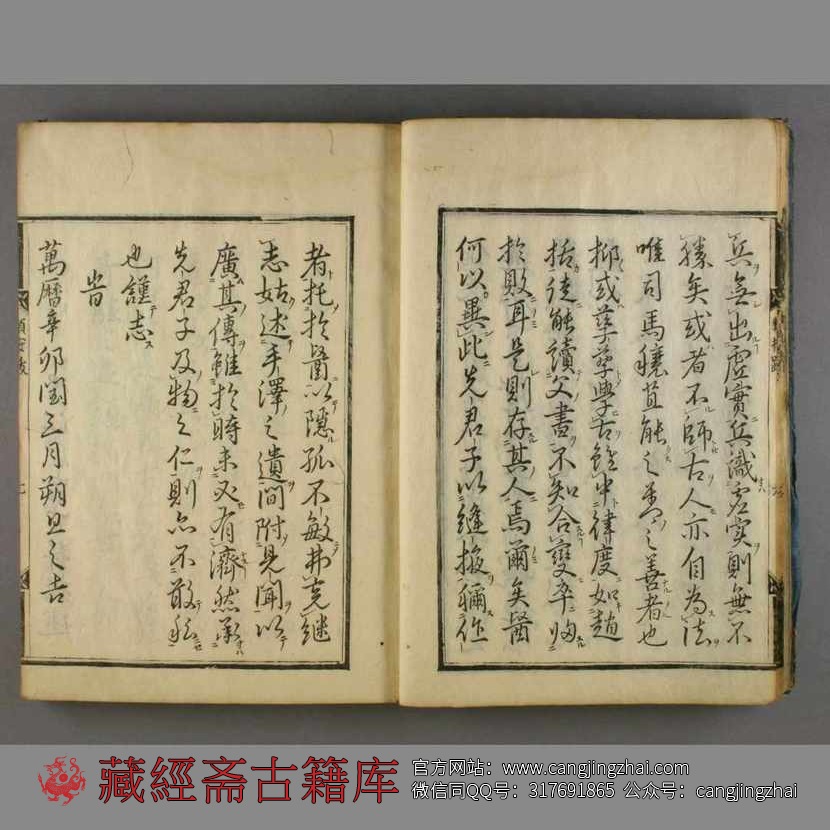 兵無出虛實兵識虛实則無不
勝矣或者不師古人亦自為法
唯司馬穰苴能之善之善者也
抑或孳孳學古雖中律度如趙
括徒能讀父書不知合變卒歸
於敗耳是則存其人焉爾矣醫
何以異此先君子以縫掖禰
者托於醫以隱孤不敏弗克繼
志姑述手澤之遺間附見聞以
廣其傳雖於時未必有濟然承
先君子及物之仁則亦不敢私
也謹志
旹
萬曆辛卯閏三月朔旦之吉
藏經斋古籍库
官方网站:www.cangjingzhai.com
微信同QQ号:317691865 公众号:cangjingzhai